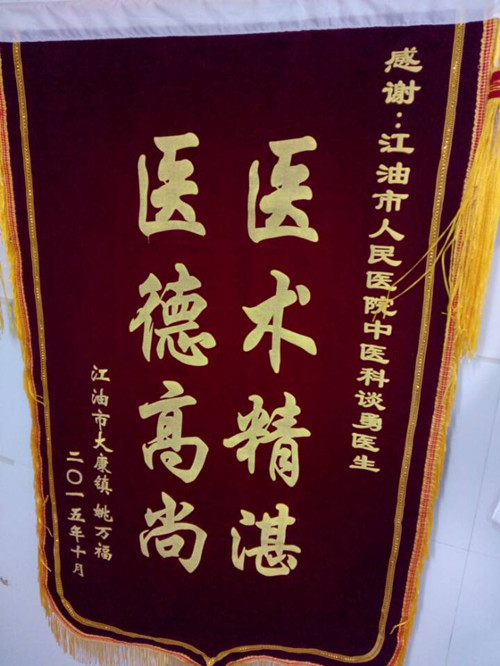 感谢：江油市人民医院中医科谈勇医生
医术精湛
医德高尚
江油市大康镇 姚万福
二〇一五年十月